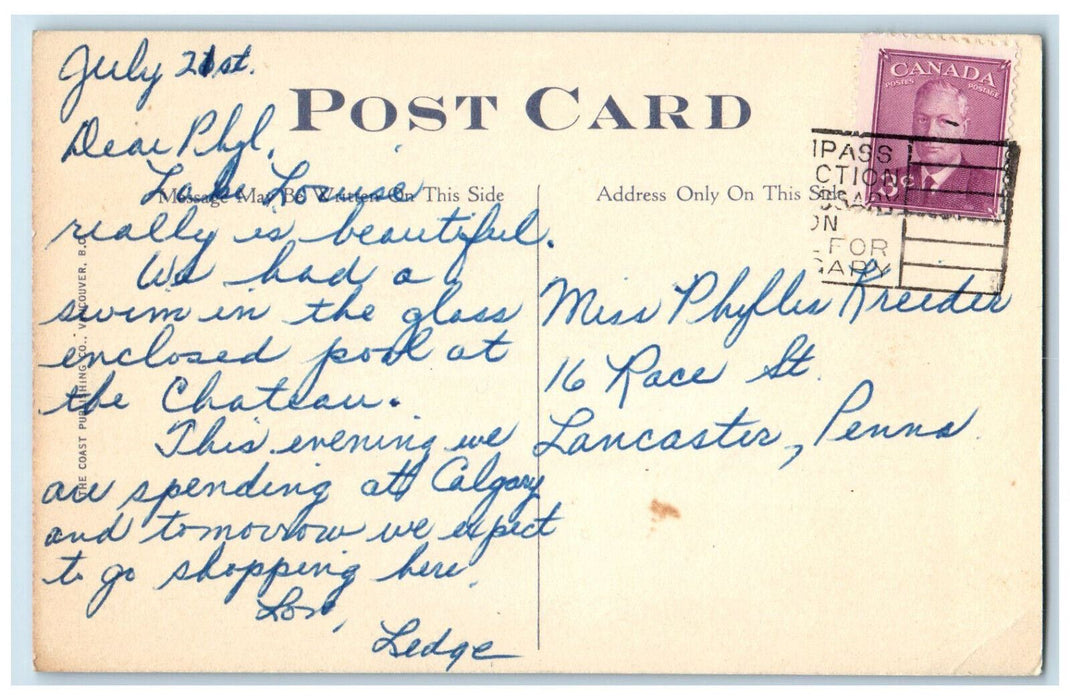 July 21st.
POST CARD
CANADA
POSTES POSTAGE
Dear Phyl,
Lake Louise
Message May Be Written On This Side
Address Only On This Side
really is beautiful.
We had a
swim in the glass
enclosed pool at
the Chateau.
This evening we
are spending at Calgary
and tomorrow we expect
to go shopping here.
Love,
Ledge
THE COAST PUBLISHING CO., VANCOUVER, B.C.
MPASS
CTION
SSARY
ON
L FOR
GARY
Miss Phyllis Kreider
16 Race St.
Lancaster, Penna